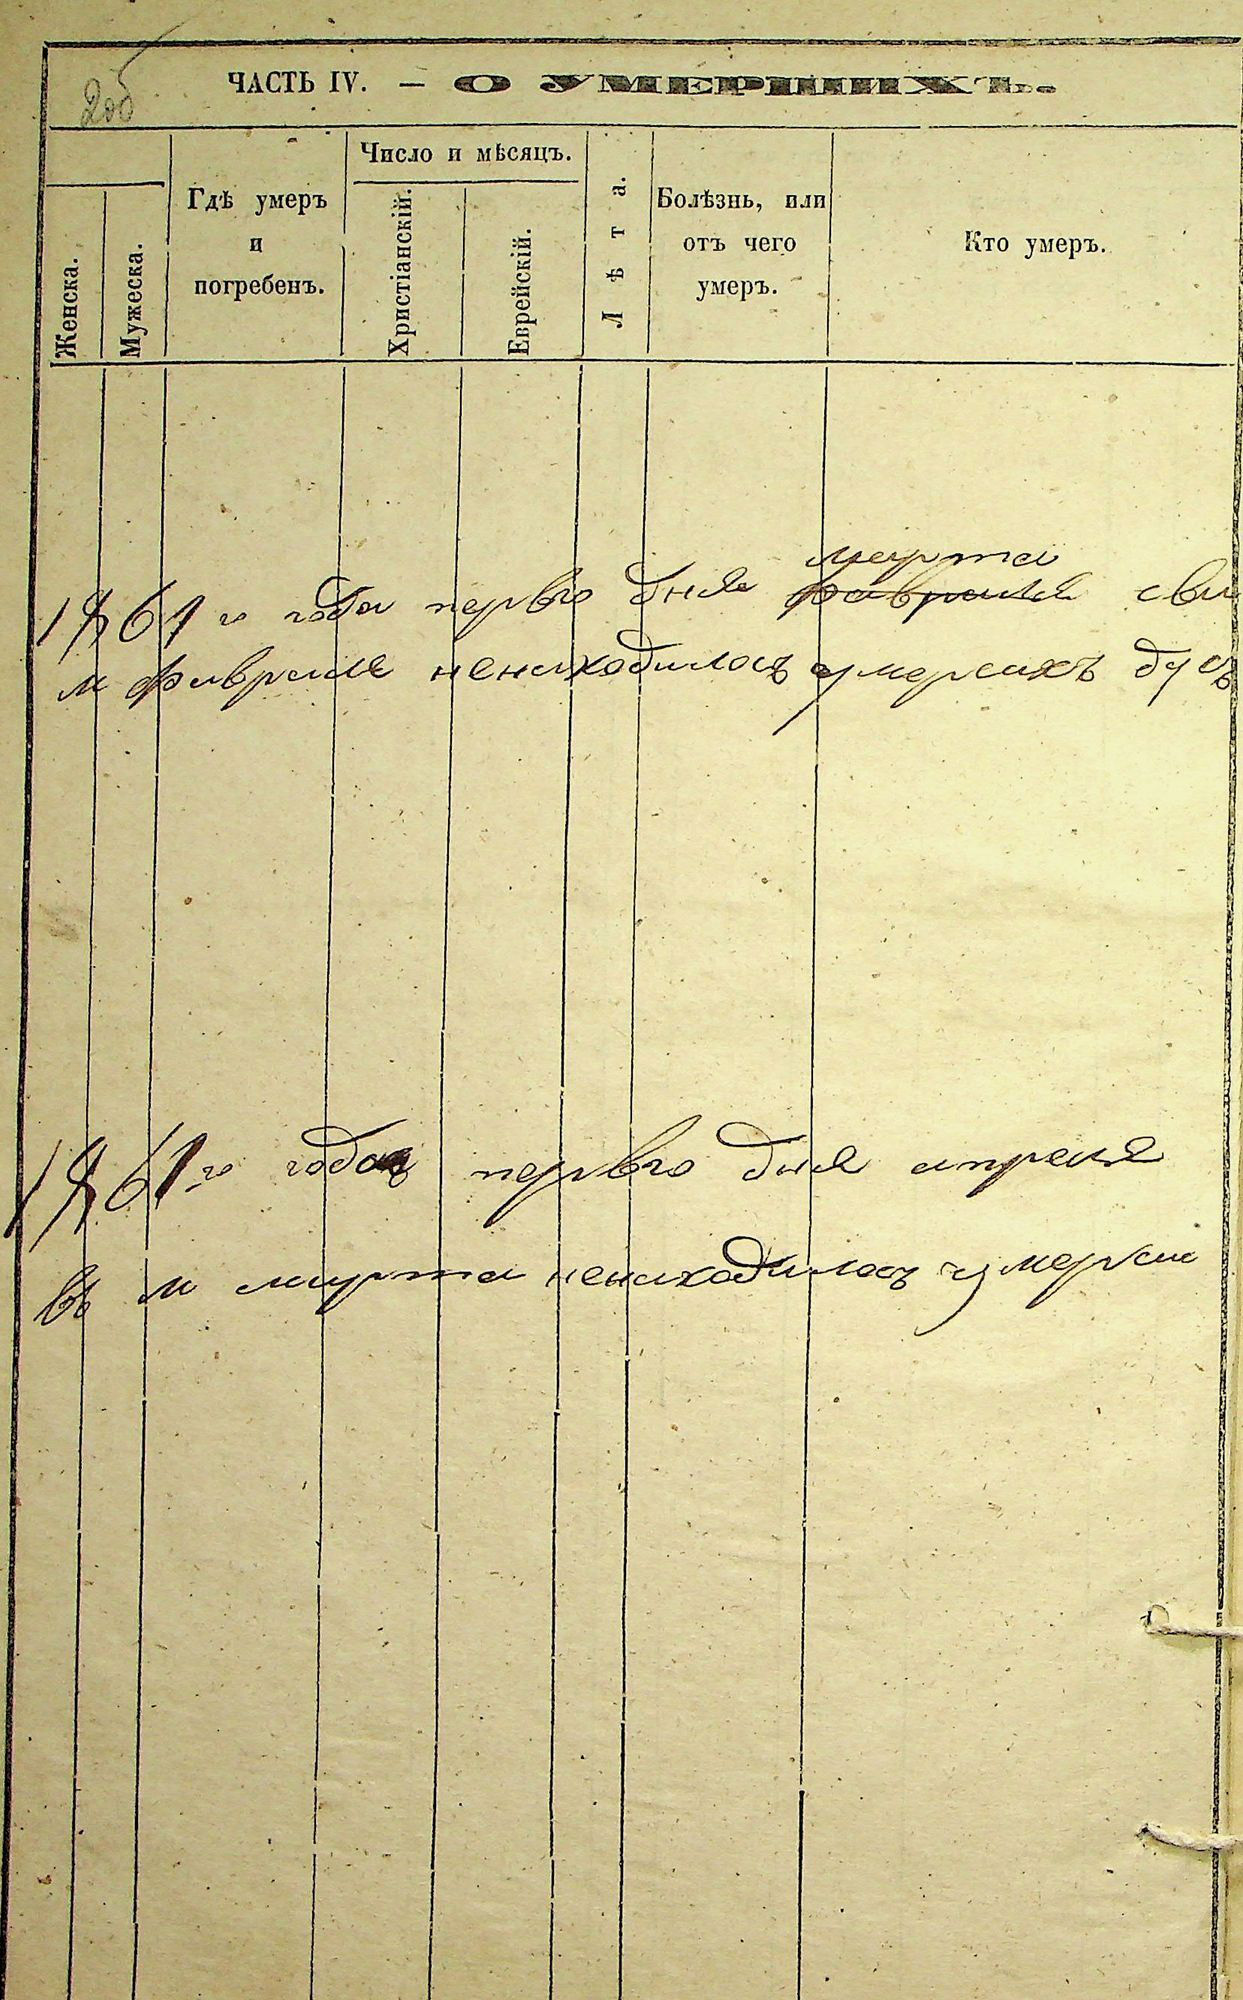 2об
ЧАСТЬ IV. — О УМЕРШИХЪ.
Женска.
Мужеска.
Гдѣ умеръ
и
погребенъ.
Число и мѣсяцъ.
Христіанскій.
Еврейскій.
Лѣта.
Болѣзнь, или
отъ чего
умеръ.
Кто умеръ.
марта
1861 го года перваго дня февраля сви
м февраля ненаходилось умерших
1861 го года перваго дня апреля
въ м марта ненаходилось умерши